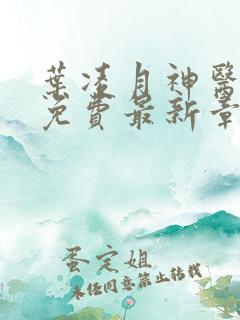 葉凌月神醫
免費最新章
蛋定姐
未經同意禁止轉載